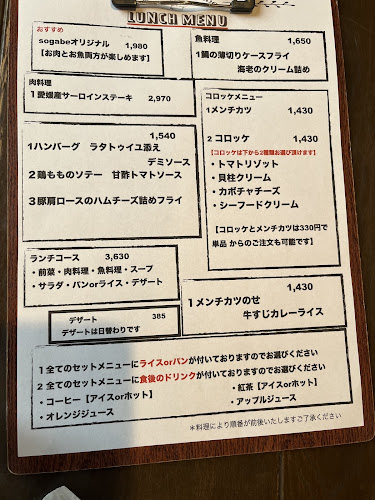 LUNCH MENU
おすすめ
sogabeオリジナル 1,980
【お肉とお魚両方が楽しめます】
魚料理 1,650
1鯛の薄切りケースフライ
海老のクリーム詰め
肉料理
1愛媛産サーロインステーキ 2,970
コロッケメニュー
1メンチカツ 1,430
2 コロッケ 1,430
【コロッケは下から2種類お選び頂けます】
・トマトリゾット
・貝柱クリーム
・カボチャチーズ
・シーフードクリーム
【コロッケとメンチカツは330円で
単品 からのご注文も可能です】
1,540
1ハンバーグ ラタトゥイユ添え
デミソース
2鶏もものソテー 甘酢トマトソース
3豚肩ロースのハムチーズ詰めフライ
ランチコース 3,630
・前菜・肉料理・魚料理・スープ
・サラダ・パンorライス・デザート
1,430
1メンチカツのせ
牛すじカレーライス
デザート 385
デザートは日替わりです
1 全てのセットメニューにライスorパンが付いておりますのでお選びください
2 全てのセットメニューに食後のドリンクが付いておりますのでお選びください
・コーヒー【アイスorホット】 ・紅茶【アイスorホット】
・オレンジジュース ・アップルジュース
＊料理により順番が前後いたしますご了承ください